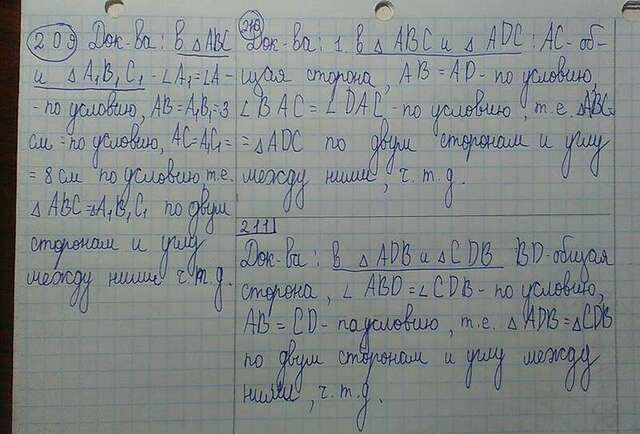 209 Док-ва: в △ABC
и △A₁B₁C₁ - ∠A₁=∠A-
- по условию, AB=A₁B₁=3
см - по условию, AC=A₁C₁=
= 8 см по условию т.е.
△ABC=△A₁B₁C₁ по двум
сторонам и углу
между ними ч.т.д.
210
Док-ва: 1. в △ABC и △ADC: AC-об-
щая сторона, AB=AD- по условию,
∠BAC=∠DAC - по условию, т.е. △ABC=
= △ADC по двум сторонам и углу
между ними, ч.т.д.
211
Док-ва: в △ADB и △CDB BD-общая
сторона, ∠ABD=∠CDB - по условию,
AB=CD- по условию, т.е. △ADB=△CDB
по двум сторонам и углу между
ними, ч.т.д.